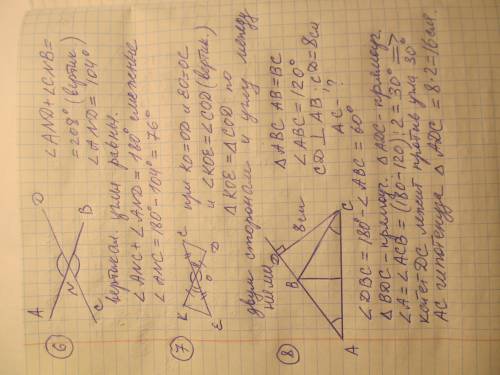 6
A
D
N
C
B
∠AND+∠CNB=
=208° (вертик.)
∠AND=104°
вертикал. углы равны.
∠ANC+∠AND=180° смежные
∠ANC=180°-104°=76°
7
K
C
O
E
D
при KO=OD и EO=OC
и ∠KOE=∠COD (вертик.)
△KOE=△COD по
двум сторонам и углу между
ними
8
D
8см
B
A
C
△ABC AB=BC
∠ABC=120°
CD⊥AB; CD=8см
AC-?
∠DBC=180°-∠ABC=60°
△BDC-прямоуг. △ADC-прямоуг.
∠A=∠ACB=(180-120):2=30° =>
катет DC лежит против угла 30°
AC гипотенуза △ADC=8·2=16см.